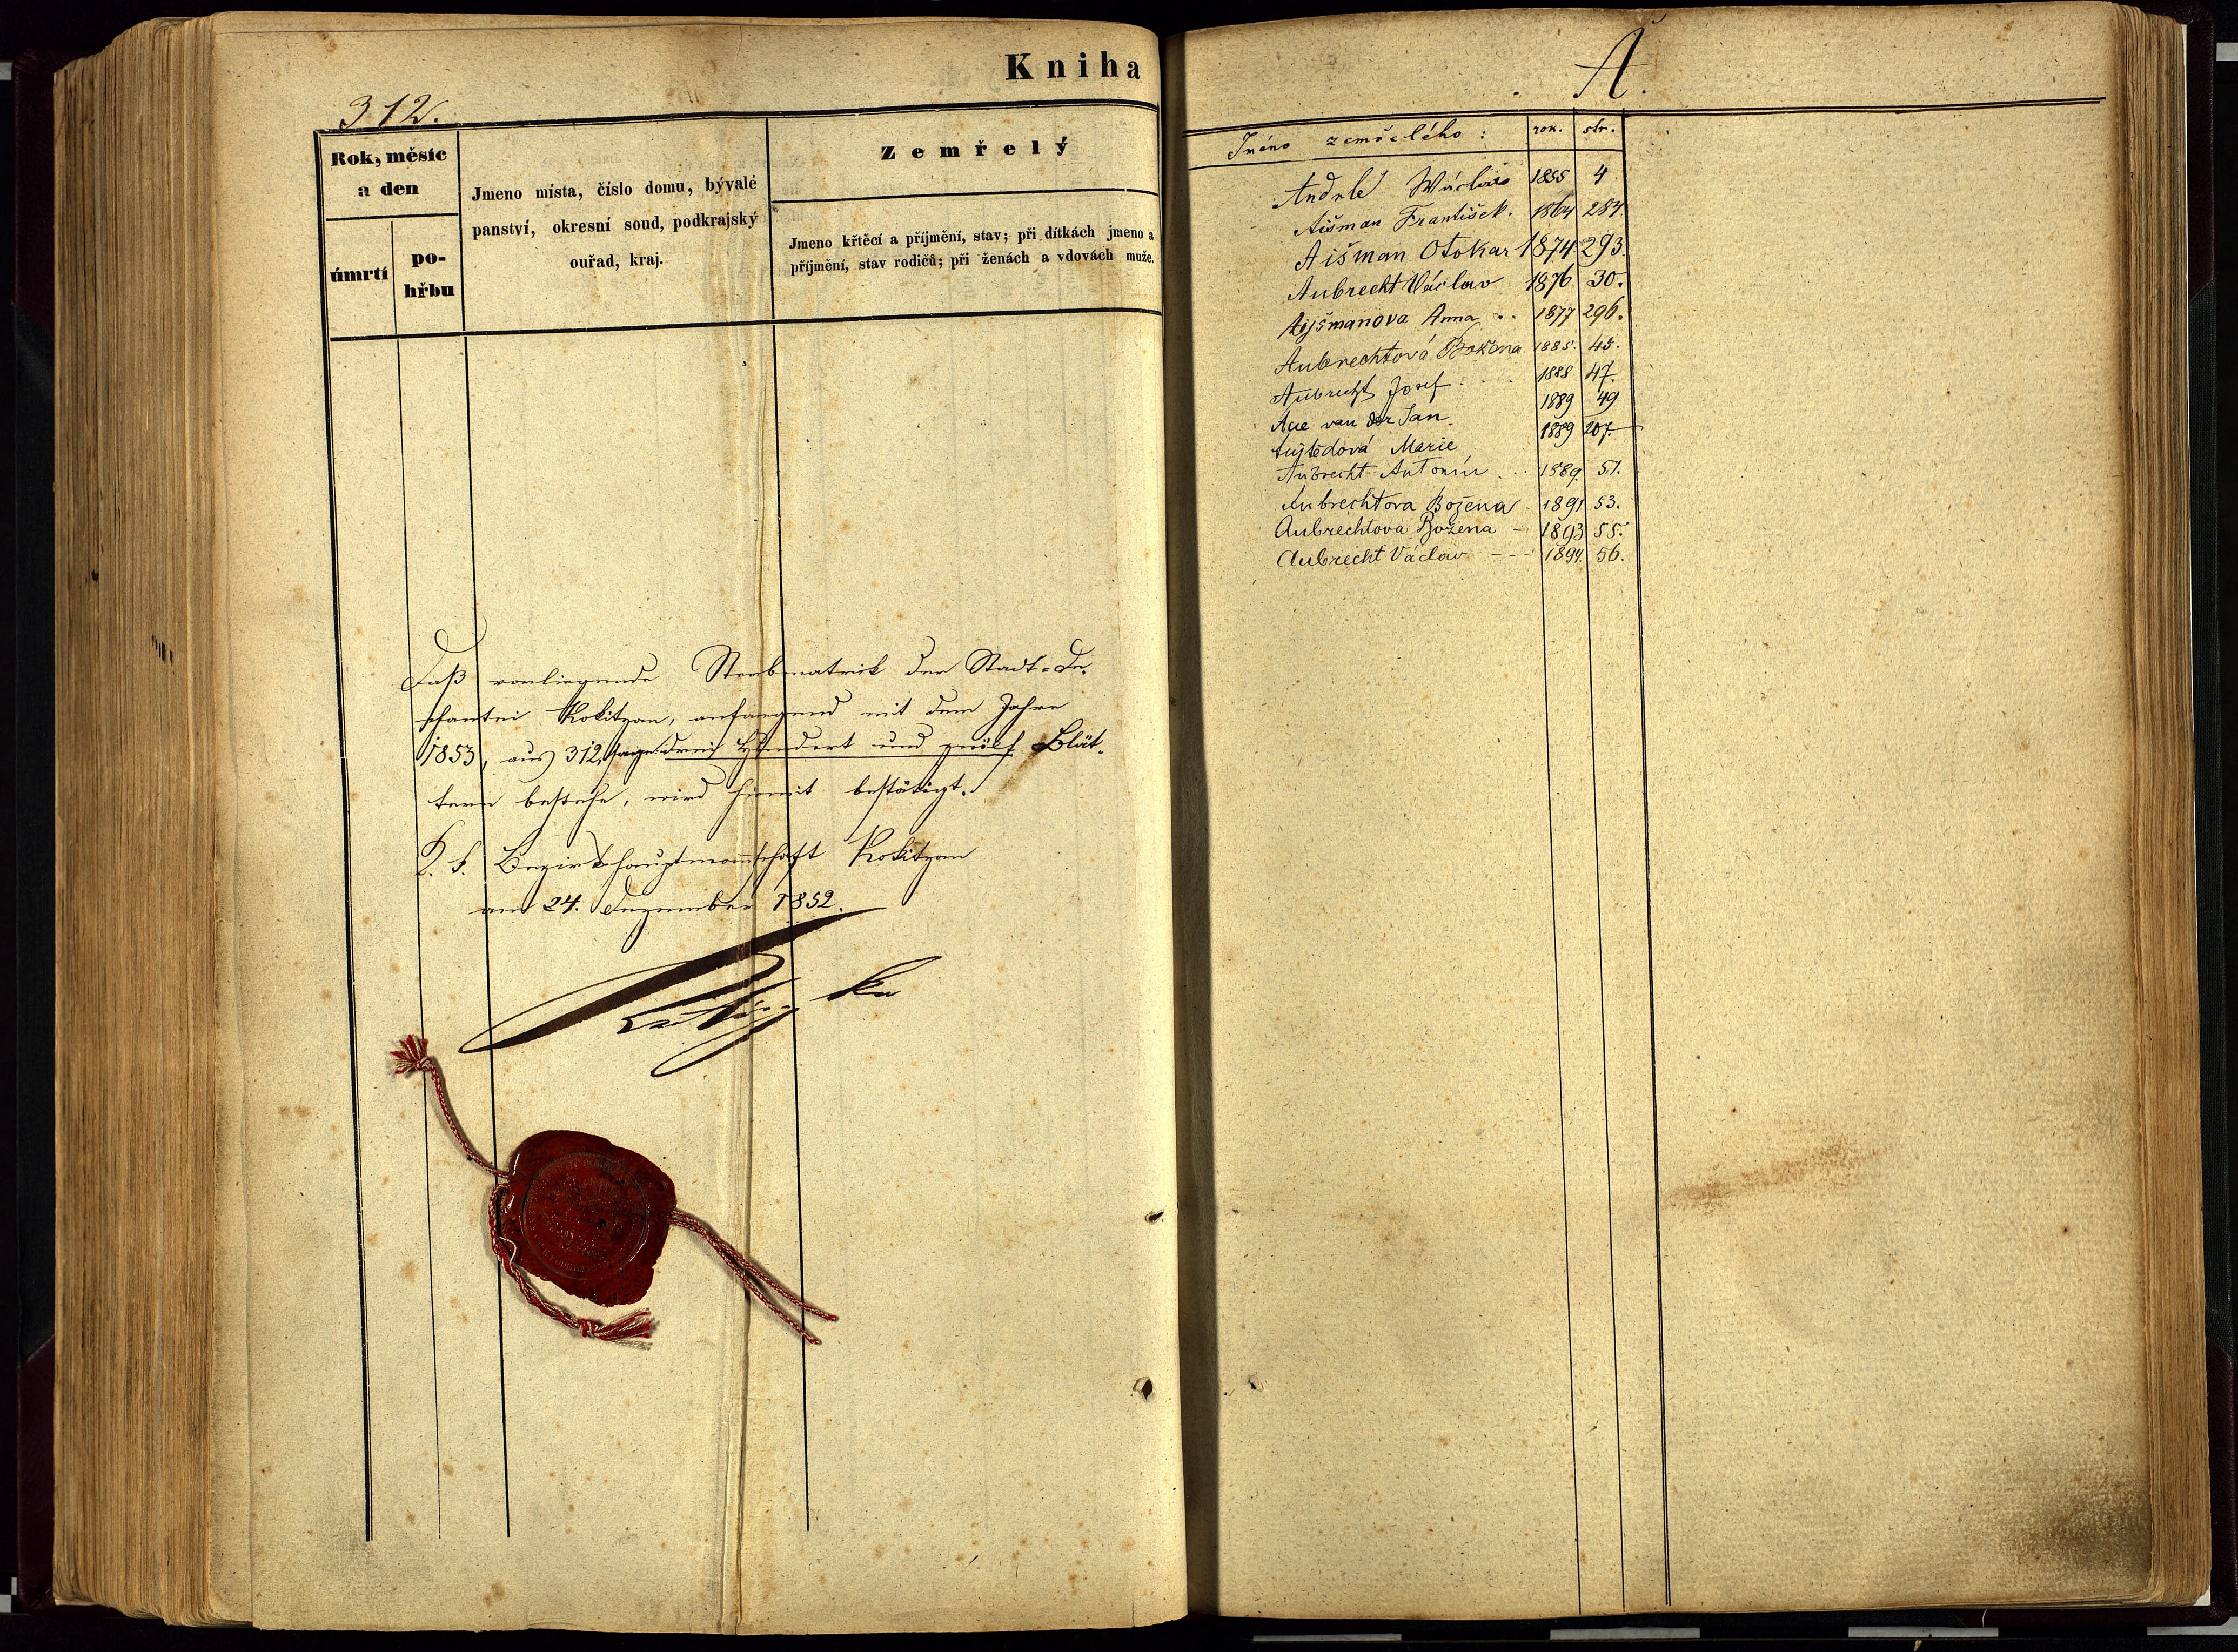 Kniha
312.
Rok, měsíc
a den
úmrtí
po-
hřbu
Jmeno místa, číslo domu, bývalé
panství, okresní soud, podkrajský
ouřad, kraj.
Zemřelý
Jmeno křtěcí a příjmění, stav; při dítkách jmeno a
příjmění, stav rodičů; při ženách a vdovách muže.
Daß vorliegende Sterbmatrik der Stadt-De-
chantei Rokitzan, anfangend mit dem Jahre
1853, aus 312, sage: drei Hundert und zwölf Blät-
tern bestehe, wird hiemit bestätigt.
K. k. Bezirkshauptmannschaft Rokitzan
am 24. Dezember 1852.
A.
Jméno zemřelého: rok. str.
Andrle Wáclav 1855 4
Aišman František. 1864 284.
Aišman Otokar 1874 293.
Aubrecht Václav 1876 30.
Aijšmanova Anna .. 1877 296.
Aubrechtová Božena 1885. 45.
Aubrecht Josef . . . 1888 47.
Aue van der Jan. 1889 49
Marie 1889 207.
Aubrecht Antonín .. 1889. 51.
Aubrechtova Božena 1891 53.
Aubrechtova Božena - 1893 55.
Aubrecht Václav --- 1894. 56.